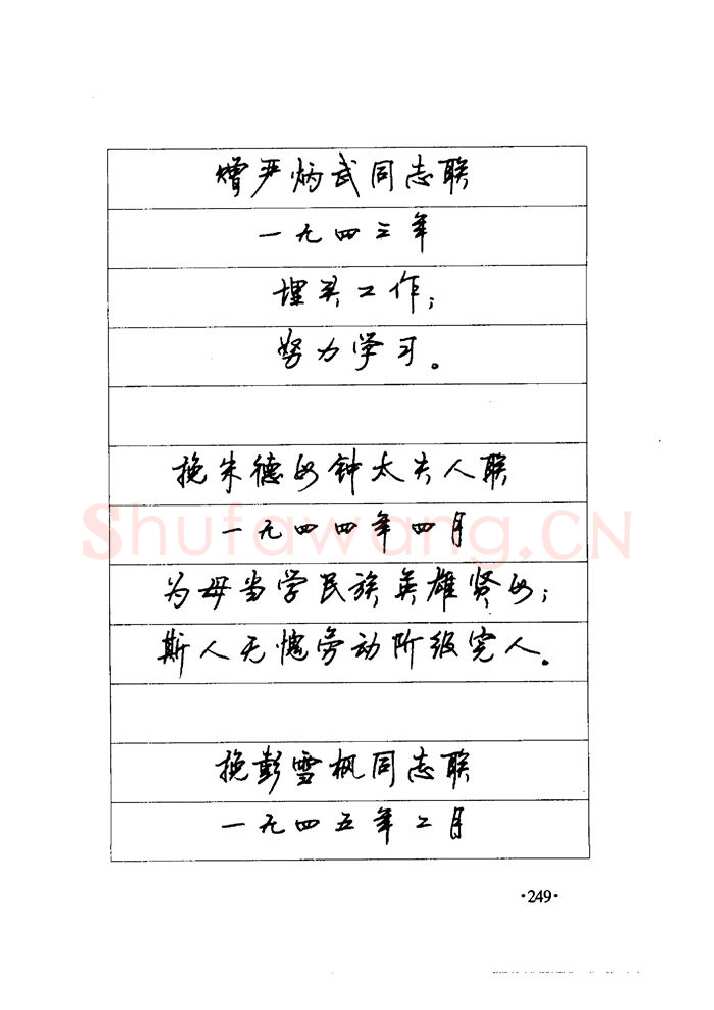 赠严炳武同志联
一九四三年
埋头工作；
努力学习。
挽朱德母钟太夫人联
一九四四年四月
为母当学民族英雄贤母；
斯人无愧劳动阶级完人。
Shufawang.CN
挽彭雪枫同志联
一九四五年二月
·249·